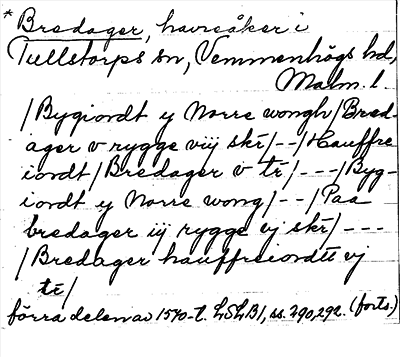 * Bredager, havreåker i
Tullstorps sn, Vemmenhögs hd,
Malm. l.
/Bygiordt y Norre wongh/Bred-
ager v rygge viij skr̄/--/Hauffre
iordt/Bredager v tr̄/---/Byg-
iordt y Norre wong/--/Paa
bredager iij rygge vj skr̄/---
/Bredager hauffreiordtt vj
tr̄/
förra delen av 1570-t. LSLB1, ss. 290, 292. (forts.)